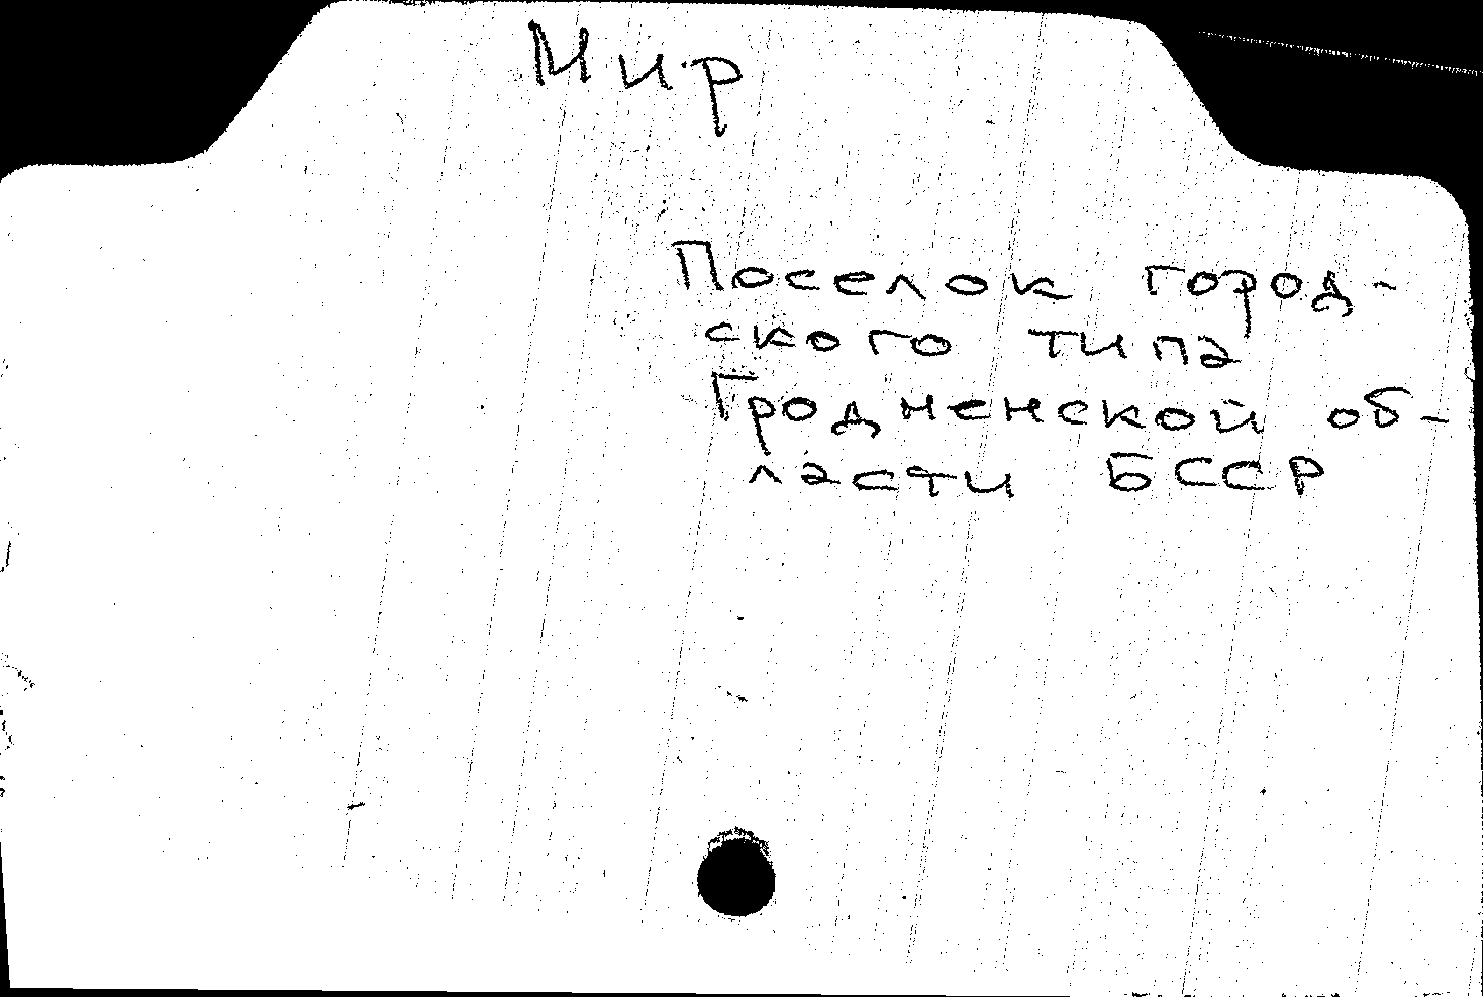 Мир
Поселок город-
ского типа
Гродненской об-
ласти БССР